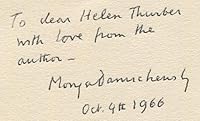 To dear Helen Thurber
with love from the
author —
Monja Danischewsky
Oct. 4th 1966